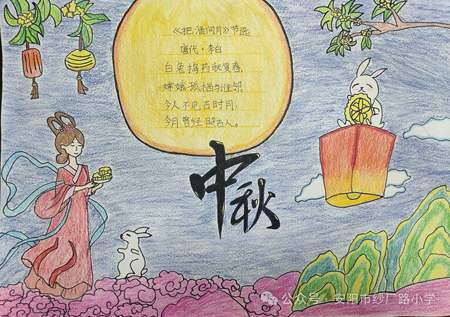 《把酒问月》节选
唐代·李白
白兔捣药秋复春,
嫦娥孤栖与谁邻
今人不见古时月,
今月曾经照古人。
中秋
公众号·安阳市纱厂路小学